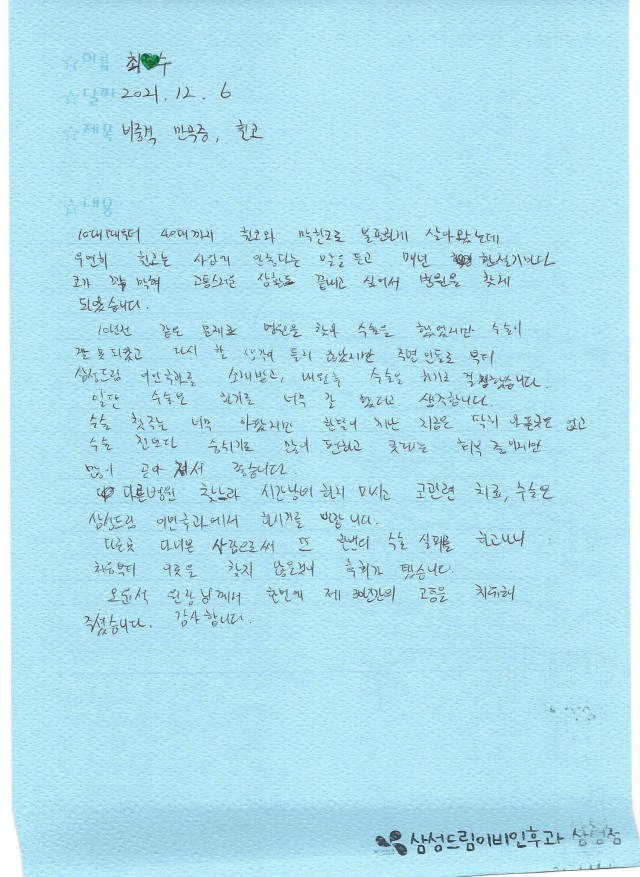 ☆이름 최💚수
☆날짜 2021. 12. 6
☆제목 비중격 만곡증, 휜코
☆내용
10대때부터 40대까지 휜코와 막힌코로 불편하게 살아왔는데
우연히 휜코는 사람게 안좋다는 말을 듣고 매년 환절기마다
코가 꽉 막혀 고통스러운 상황도 끝내고 싶어서 병원을 찾게
되었습니다.
10년전 같은 문제로 병원을 찾아 수술을 했었지만 수술이
잘못되었고 다시 할 생각이 들지 않았지만 주변인들로 부터
삼성드림 이비인후과를 소개받고, 내원후 수술을 하기로 결정했습니다.
일단 수술은 하기로 너무 잘 했다고 생각합니다.
수술 첫주는 너무 아팠지만 한달이 지난 지금은 딱히 아픈곳은 없고
수술 전보다 숨쉬기도 많이 편하고 콧대는 회복 중이지만
많이 곧아 져서 좋습니다.
다른병원 찾느라 시간낭비 하지 마시고 코관련 치료, 수술은
삼성드림 이비인후과에서 하시기를 바랍니다.
다른곳 다녀본 사람으로써 또 한번의 수술 실패를 하고나니
처음부터 이곳을 찾지 않은것이 후회가 됐습니다.
오윤석 원장님께서 한번에 제 30년간의 고통을 치유해
주셨습니다. 감사합니다.
삼성드림이비인후과 삼성점